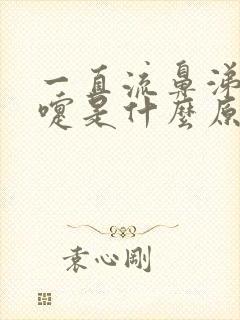 一直流鼻涕
嚏是什麼原
袁心剛